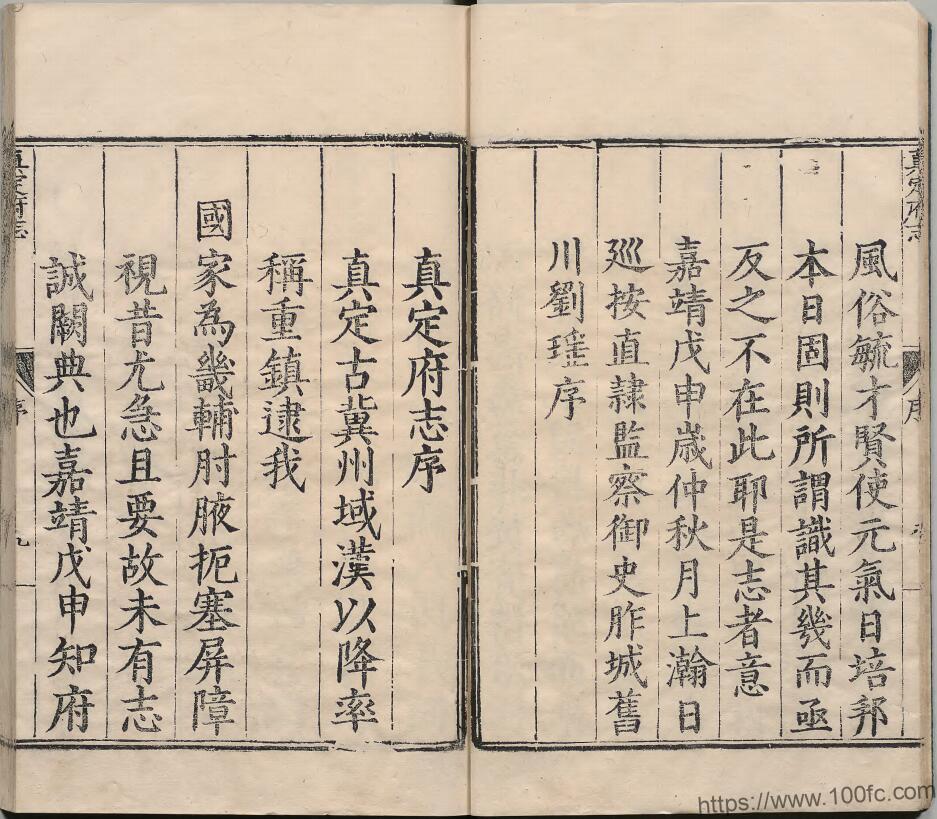 風俗毓才賢使元氣日培邦
本日固則所謂識其幾而亟
反之不在此耶是志者意
嘉靖戊申歲仲秋月上瀚日
巡按直隸監察御史胙城舊
川劉瑤序
真定府志序
真定古冀州域漢以降率
稱重鎮逮我
國家為畿輔肘腋扼塞屏障
視昔尤急且要故未有志
誠闕典也嘉靖戊申知府
真定府志
序
九
https://www.100fc.com